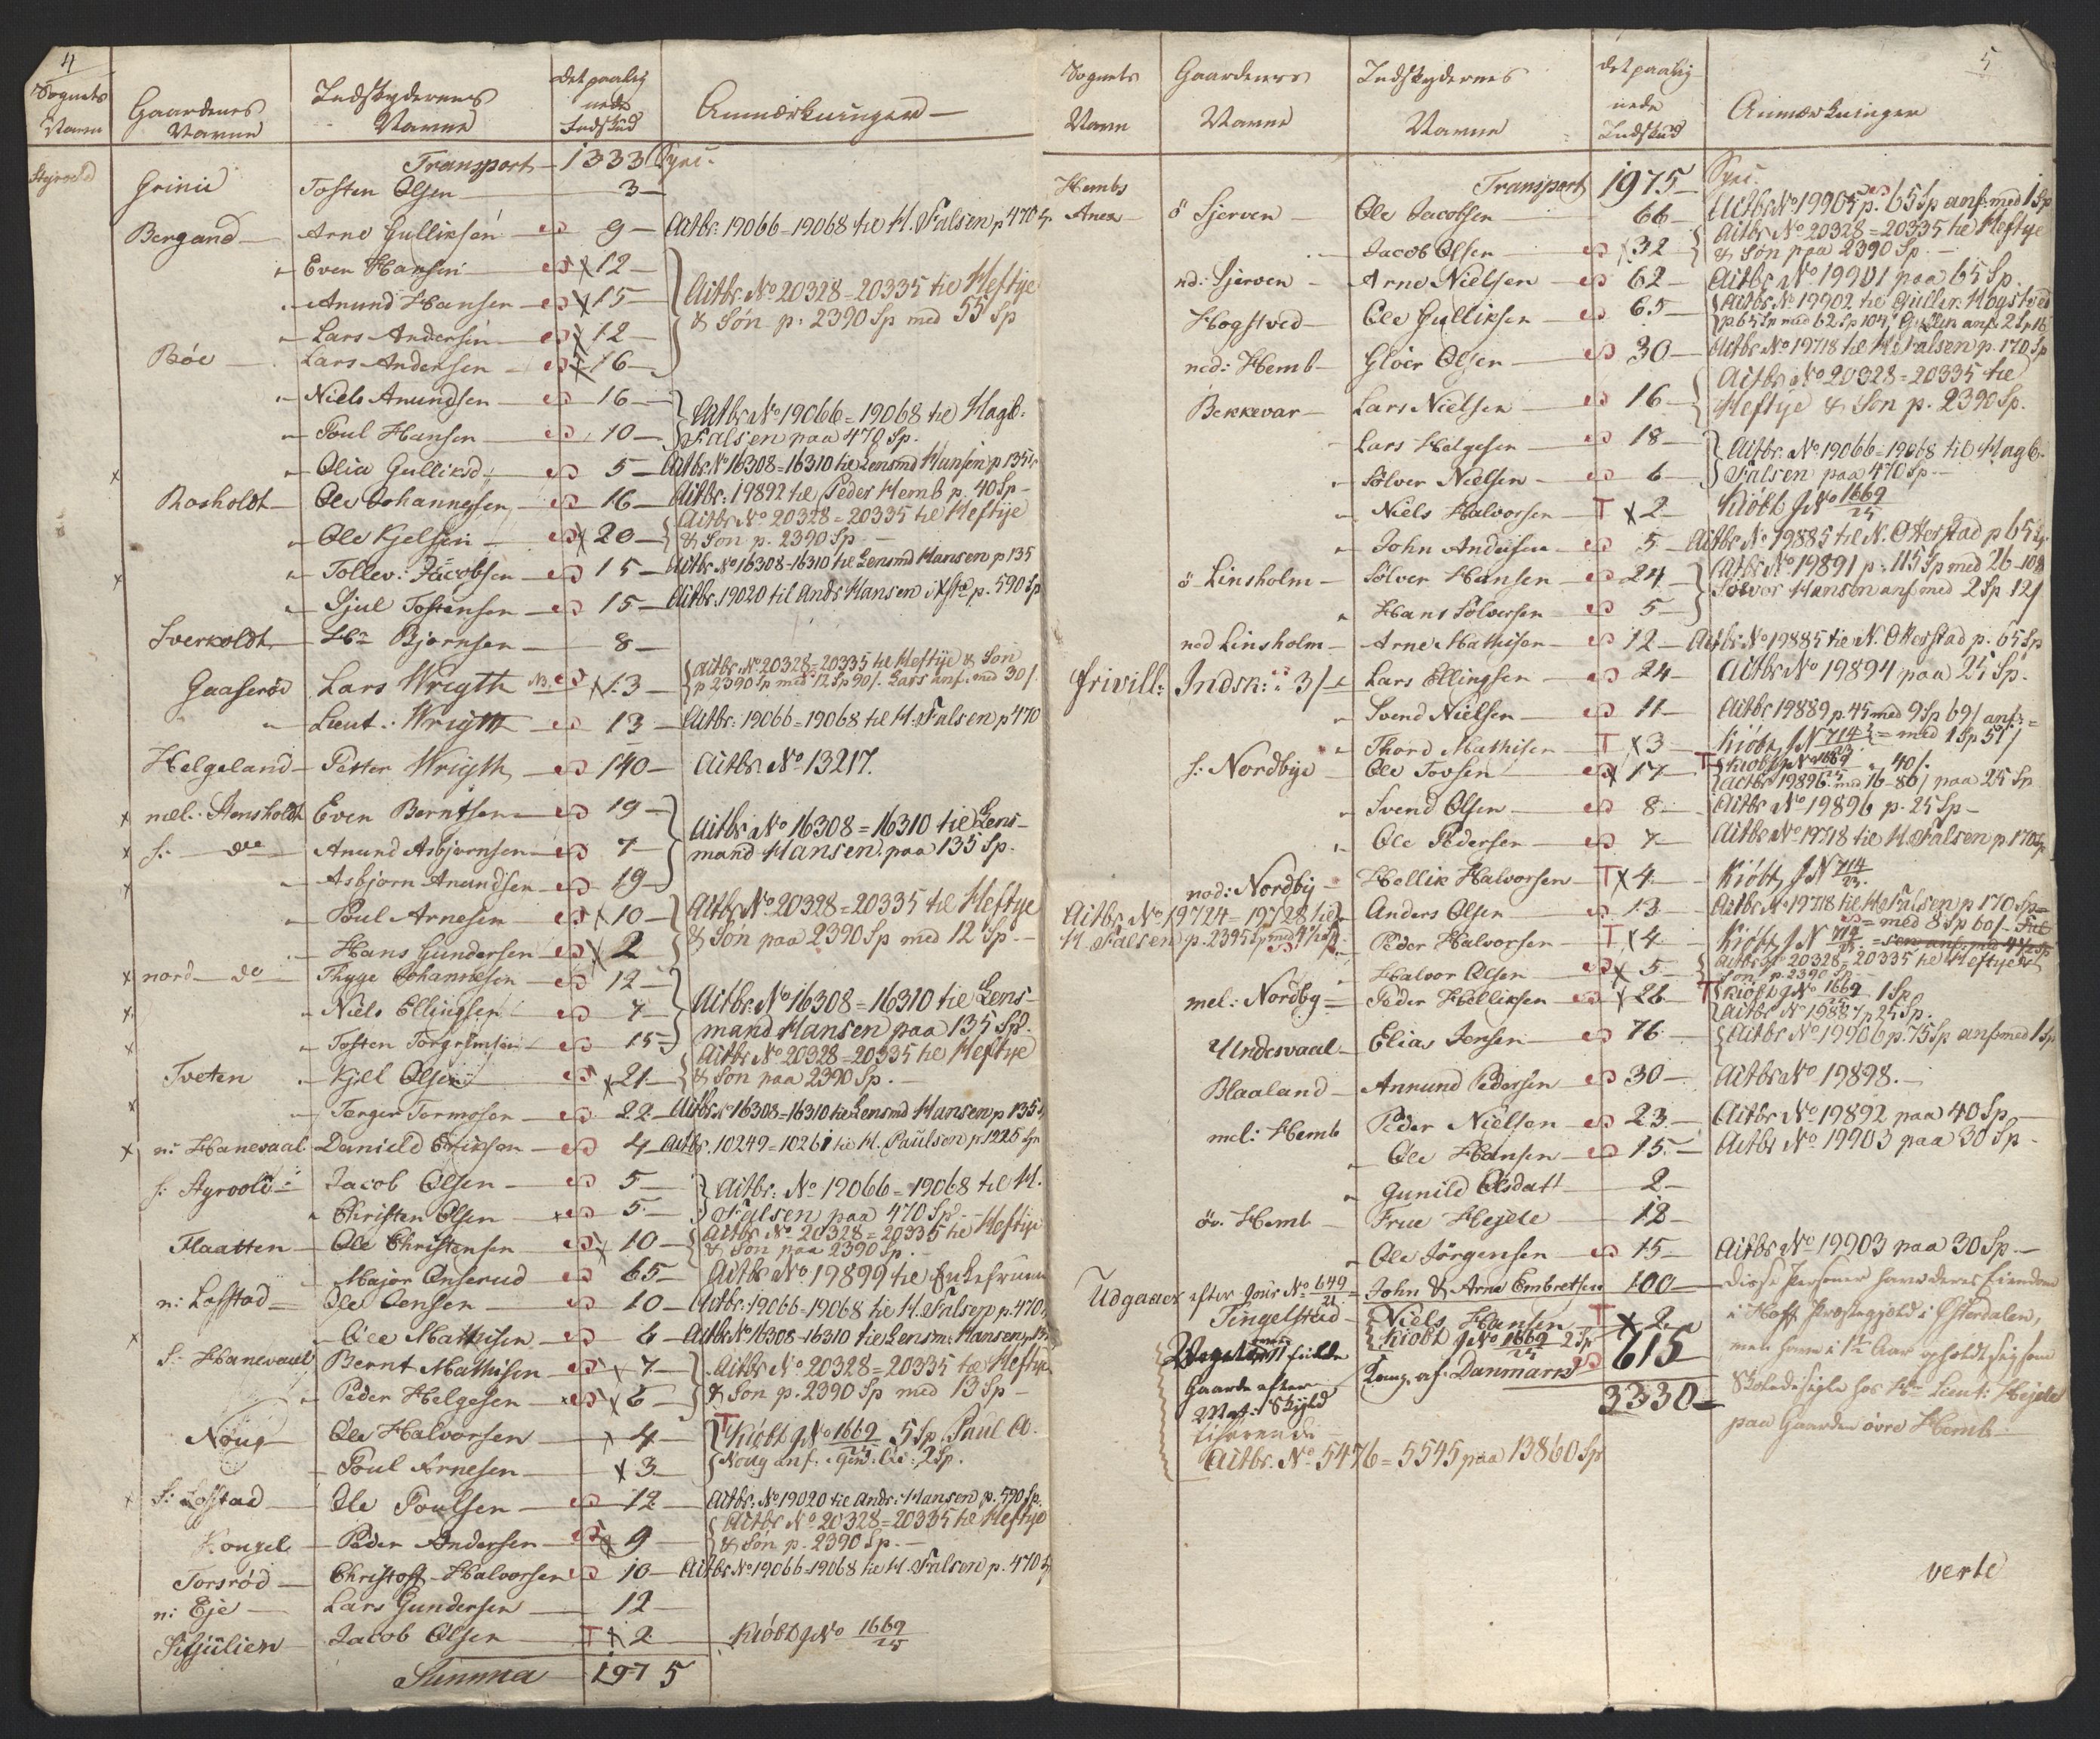 4
Sognets Navn | Gaardenes Navne | Indskydernes Navne | det paalignede Indskud | Anmærkninger
Transport — 1333 Spec.
Grini | Tosten Olsen — 3 —
Bergand — Arne Gulliksen — 9 — Actbr. 19066=19068 til H. Falsen p 470 Sp
" Even Hansen — x 12 —
" Anund Hansen — x 15 — Actbr. No 20328=20335 til Heftye
" Lars Andersen — x 12 — & Søn p. 2390 Sp med 55 Sp
Böe — Lars Andersen — x 16 —
" Niels Anundsen — 16 — Actbr No 19066=19068 til Hagb.
" Poul Hansen — 10 — Falsen paa 470 Sp.
x " Olia Gulliksd: — 5 — Actbr. No 16308=16310 til Lensmd Hansen p 135 Sp
Rosholdt — Ole Johannesen — 16 — Actbr: 19892 til Peder Hemb p. 40 Sp —
" Ole Kjelsen — x 20 — Actbr No 20328=20335 til Heftye & Søn p. 2390 Sp —
x " Tollev: Jacobsen — 15 — Actbr No 16308-16310 til Lensmd Hansen p 135
" Sjul Tostensen — 15 — Actbr. 19020 til Ands Hansen p. 590 Sp
Sverkoldt — Hr Bjørnsen — 8 —
Gaaserød | Lars Wrigth NB. — x 13 — Actbr. No 20328=20335 til Heftye & Søn
p 2390 Sp med 12 Sp 90/. Lars anf. med 30/.
" Lieut: Wrigth — 13 — Actbr: 19066=19068 til H. Falsen p 470
Helgeland — Petter Wrigth — 140 — Actbr No 13217.
x mel: Stensholdt Even Berntsen — 19 —
x s: — do — Anund Asbjørnsen — 7 — Actbr No 16308=16310 til Lens-
x " Asbjørn Anundsen — 19 — mand Hansen paa 135 Sp.
" Poul Arnesen — x 10 — Actbr No 20328=20335 til Heftye
" Hans Gundersen — x 2 & Søn paa 2390 Sp med 12 Sp. —
x nord — do — Thyge Johannesen — 12 —
x " Niels Ellingsen — 7 — Actbr. No 16308=16310 til Lens-
x " Tosten Torgrimsen — 15 — mand Hansen paa 135 Sp.
Tveten — Kjel Olsen — x 21 — Actbr No 20328=20335 til Heftye & Søn paa 2390 Sp. —
x — Torger Tormosen — 22 — Actbr No 16308=16310 til Lensmd Hansen p 135
x n: Hanevaal Daniel Eriksen — 4 — Actbr. 10249=10261 til H. Paulsen p 1225 Sp
s: Styrvold — Jacob Olsen — 5 — Actbr: No 19066=19068 til H.
" Christen Olsen — 5 — Falsen paa 470 Sp —
Flaatten — Ole Christensen — x 10 — Actbr No 20328=20335 til Heftye & Søn paa 2390 Sp. —
" Major Anserud — 65 — Actbr No 19899 til Enkefruen
n: Løfstad — Ole Jensen — 10 — Actbr: 19066=19068 til H. Falsen p. 470
x — Ole Mathisen — 6 — Actbr No 16308-16310 til Lensm: Hansen p. 135
S: Hanevaal Bernt Mathisen — x 7 — Actbr No 20328=20335 til Heftye
" Peder Helgesen — x 6 — & Søn p. 2390 Sp med 13 Sp —
Noug — Ole Halvorsen — x 4 — T Kiöbt J No 1669/25 5 Sp. Paul A.
— Poul Arnesen — x 3 — Noug anf. 2 Sp.
x S: Løfstad — Ole Poulsen — 12 — Actbr: No 19020 til Ands: Hansen p. 590 Sp.
Kongel — Peder Andersen — x 9 — Actbr No 20328=20335 til Heftye & Søn p. 2390 Sp. —
Torsrød — Christoff. Halvorsen — 10 — Actbr No 19066-19068 til H. Falsen p. 470 Sp
n: Eje — Lars Gundersen — 12 —
Jacob Olsen — T x 2 — Kiöbt J No 1669/25
Summa 1975
5
Sognets Navn | Gaardenes Navne | Indskydernes Navne | det paalignede Indskud | Anmærkninger
Transport 1975 — Spec.
Hembs Anex — ö Sjerven — Ole Jacobsen — 66 — Actbr No 19905 p. 65 Sp anf. med 1 Sp
— Jacob Olsen — x 32 Actbr No 20328=20335 til Heftye & Søn paa 2390 Sp. —
nd: Sjerven — Arne Nielsen — 62 — Actbr No 19901 paa 65 Sp.
Hogstved — Ole Gulliksen — 65 — Actbr. No 19902 til Gullik Hogstved
p 65 Sp med 62 Sp 104/ Gullik anf. 2 Sp 16
ned: Hemb — Gloer Olsen — 30 — Actbr No 19718 til H. Falsen p. 170 Sp
Bekkevar — Lars Nielsen — 16 — Actbr No 20328=20335 til Heftye & Søn p. 2390 Sp.
Lars Helgesen — 18 — Actbr. No 19066=19068 til Hagb.
" Sølver Nielsen — 6 — Falsen paa 470 Sp —
" Niels Halvorsen — T x 2 — Kiöbt J No 1669/25
" John Andersen — 5 — Actbr No 19885 til N. Otterstad p 65 Sp
ö Linsholm — Sølver Hansen — 24 — Actbr No 19891 p. 115 Sp med 26-108
" Hans Sølversen — 5 — Sølver Hansen anf. med 2 Sp 12/
ned Linsholm — Arne Mathisen — 12 — Actbr No 19885 til N. Otterstad p. 65 Sp
frivill: Indsk: 3/ — Lars Ellingsen — 24 — Actbr No 19894 paa 25 Sp.
" Svend Nielsen — 11 — Actbr 19889 p. 45 med 9 Sp 69/ anf. =
" Thord Mathisen — T x 3 — Kiöbt J N 714/23 = med 1 Sp 51/
s: Nordbye — Ole Tovsen — x 17 — T Kiöbt J No 1669/25 40/.
Actbr 19896 med 16-80/ paa 25 Sp
" Svend Olsen — 8 — Actbr No 19896 p. 25 Sp —
" Ole Pedersen — 7 — Actbr No 19718 til H. Falsen p. 170 Sp
nod: Nordby — Hellik Halvorsen — T x 4 — Kiöbt J N 714/23.
Actbr. No 19724=19728 til Anders Olsen — 13 — Actbr No 19718 til H. Falsen p 170 Sp =
H. Falsen p. 2395 Sp med 4½ Sp. Peder Halvorsen — T x 4 — Kiöbt J N 714/23. = med 8 Sp 60/ —
" Halvor Olsen — x 5 — Actbr No 20328=20335 til Heftye & Søn p. 2390 Sp —
mel: Nordby = Peder Helliksen — x 26 — T Kiöbt J No 1669/25 1 Sp
Actbr No 19887 p 25 Sp.
Undesvaal — Elias Jensen — 76 — Actbr No 19906 p. 75 Sp anf. med 1 Sp
Blaaland — Annund Pedersen — 30 — Actbr No 19898. —
mel: Hemb Peder Nielsen — 23 — Actbr No 19892 paa 40 Sp —
" Ole Hansen — 15 — Actbr No 19903 paa 30 Sp —
" Gunild Olsdatt — 2 —
öv. Hemb — Frue Hejele — 12 —
" Ole Jörgensen — 15 — Actbr No 19903 paa 30 Sp. —
Udgaaer efter Jour No 649/21 = John & Arne Embretsen 100 — disse Personer have deres Eiendom
Tingelstad — Niels Hansen T x 2 — i Hoff Præstegjæld i Østerdalen,
Kiöbt J No 1669/25 2 Sp men have i 1½ Aar opholdt sig som
Gaarde efter Kong. af Danmark 615 — hos Hr Lieut: Hejele
Mat: Skyld 3330 — paa Gaarden øvre Hemb.
Actbr. No 5476=5545 paa 13860 Sp
verte